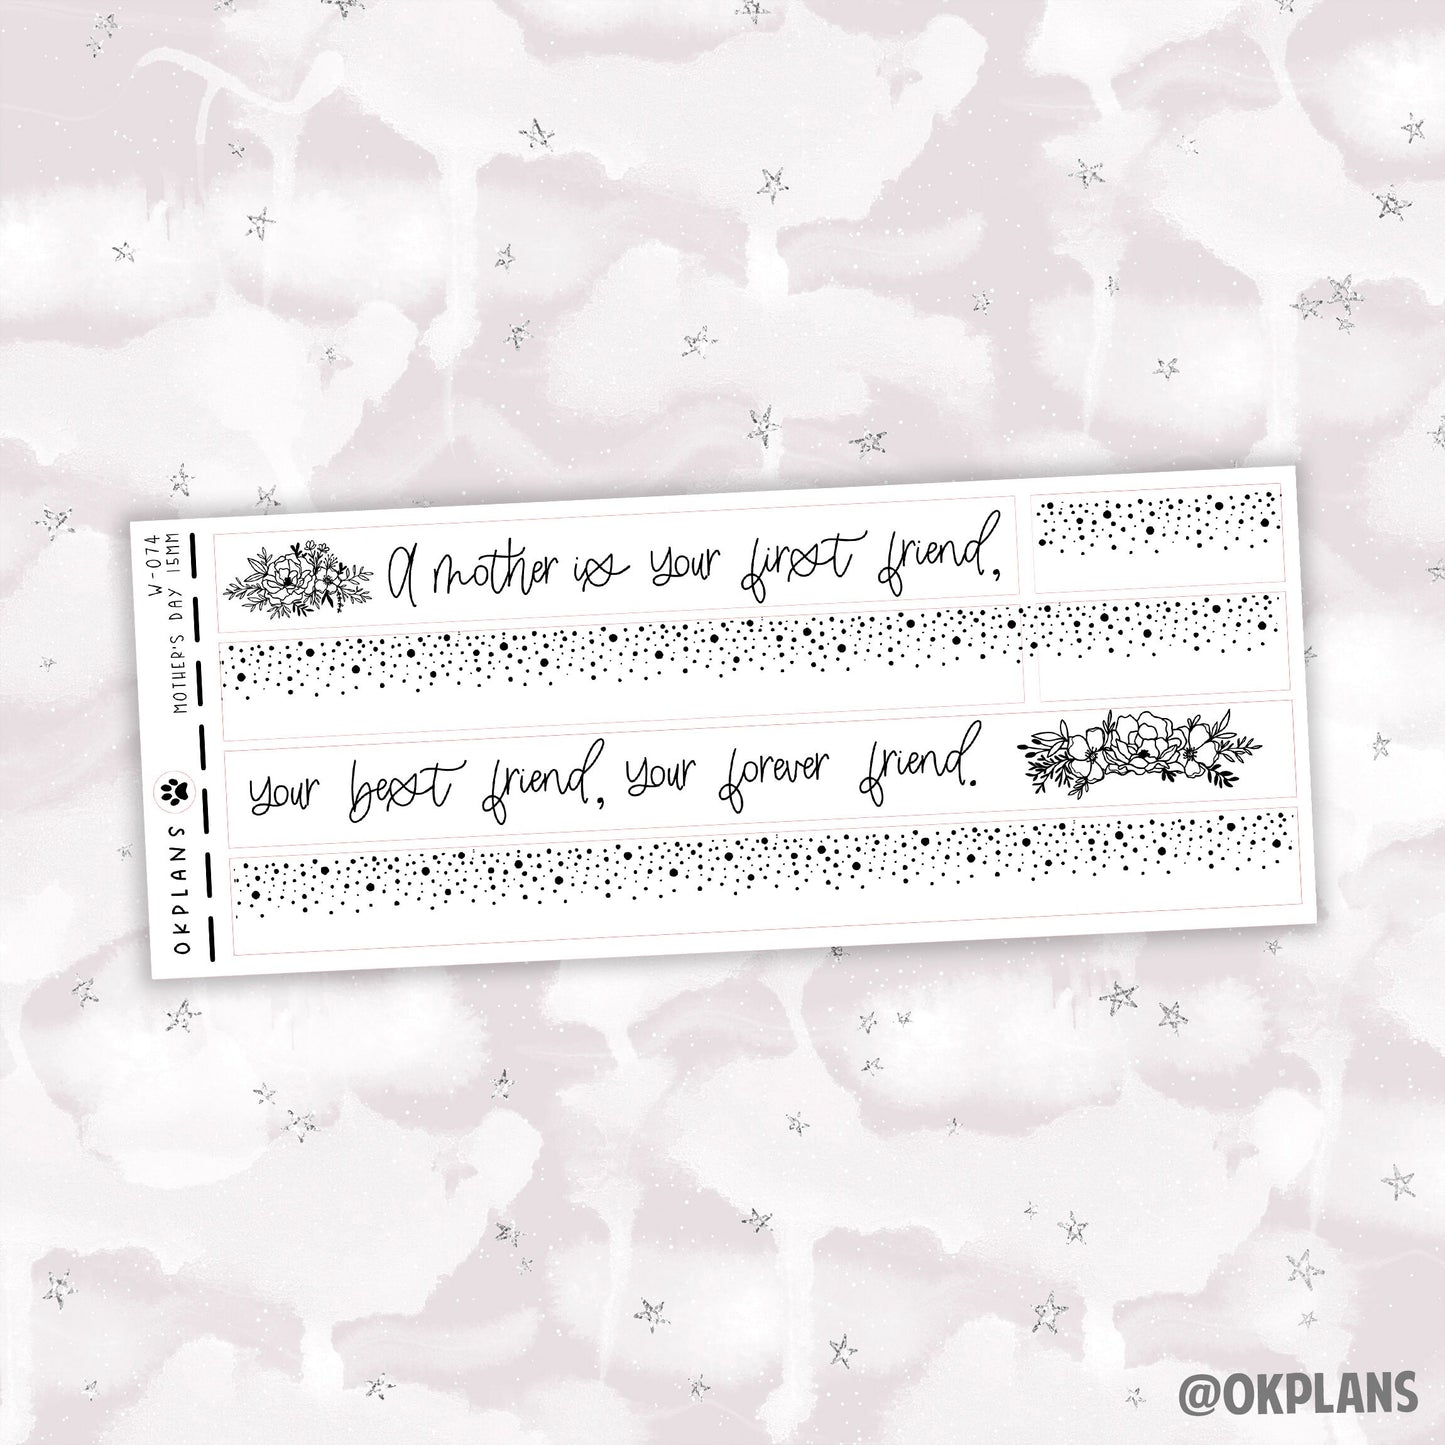 W-074
MOTHER'S DAY 15MM
OKPLANS
A mother is your first friend,
your best friend, your forever friend.
@OKPLANS